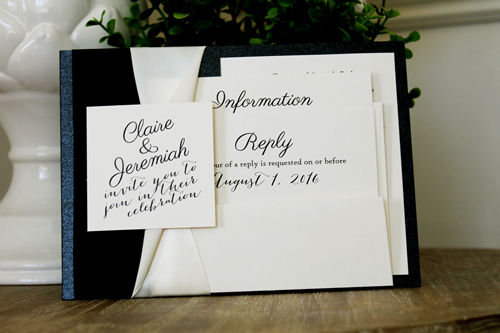 Claire
&
Jeremiah
invite you to
join in their
celebration
Information
Reply
our of a reply is requested on or before
August 1, 2016